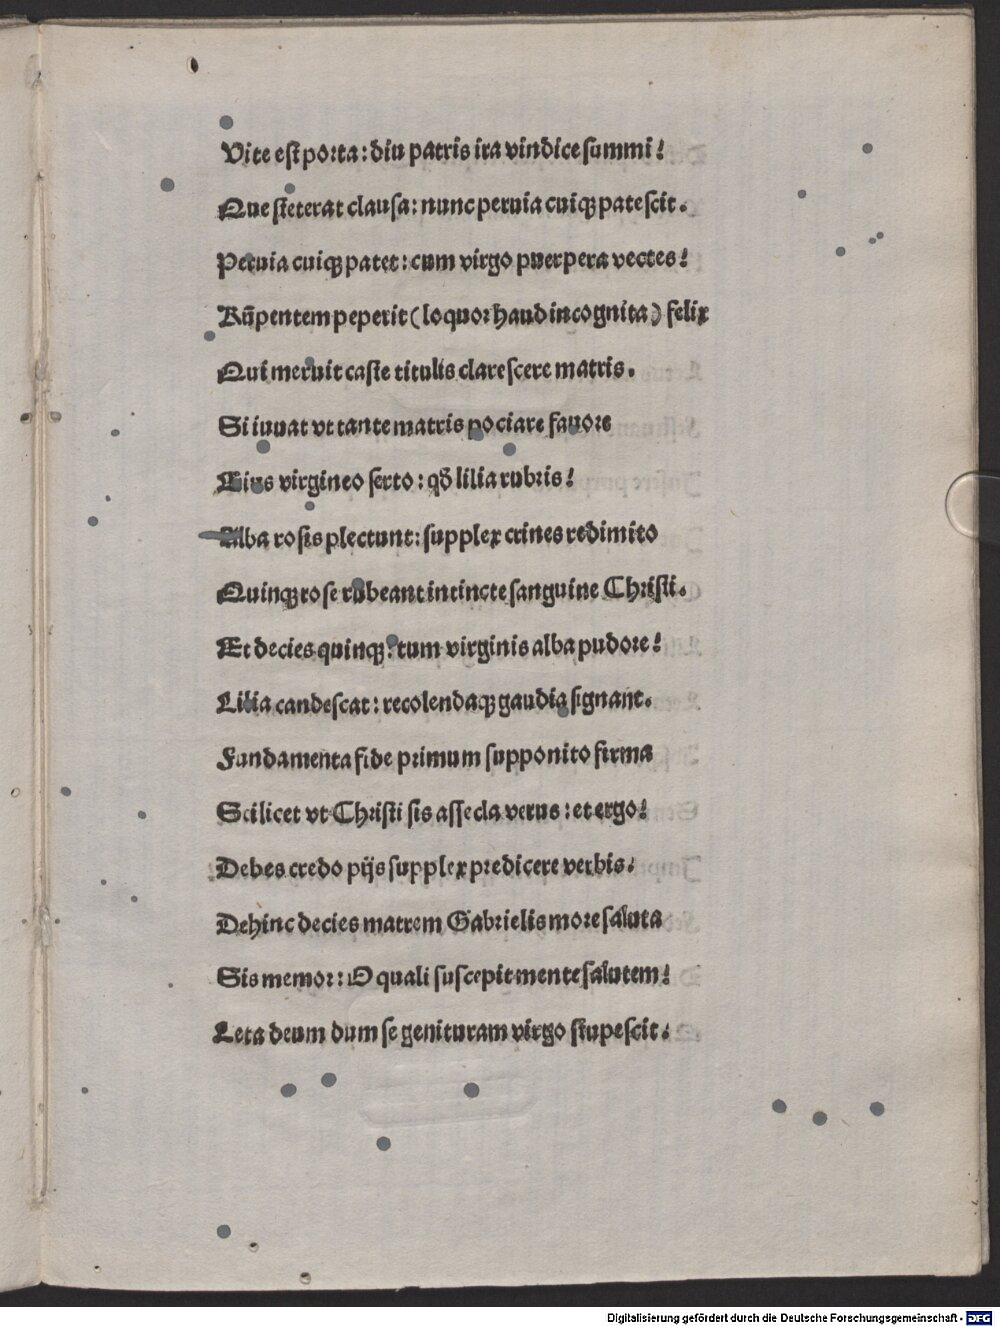 Vite est porta: diu patris ira vindice summi!
Que steterat clausa: nunc peruia cuiqꝫ patescit.
Peruia cuiqꝫ patet: cum virgo puerpera vectes!
Rūpentem peperit (loquor haud incognita) felix
Qui meruit caste titulis clarescere matris.
Si iuuat vt tante matris pociare fauore
Eius virgineo serto: qđ lilia rubris!
Alba rosis plectunt: supplex crines redimito
Quinqꝫ rose rubeant intincte sanguine Christi.
Et decies quinqꝫ: tum virginis alba pudore!
Lilia candescat: recolendaqꝫ gaudia signant.
Fundamenta fide primum supponito firma
Scilicet vt Christi sis assecla verus: et ergo!
Debes credo pijs supplex predicere verbis.
Dehinc decies matrem Gabrielis more saluta
Sis memor: O quali suscepit mente salutem!
Leta deum dum se genituram virgo stupescit.
Digitalisierung gefördert durch die Deutsche Forschungsgemeinschaft - DFG